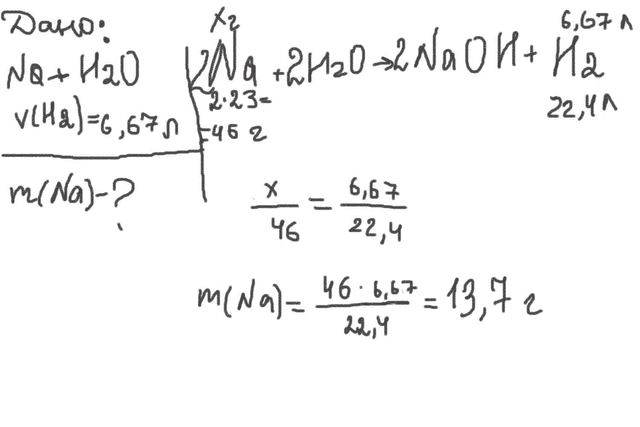 Дано:
Na + H2O
V(H2) = 6,67 л
m(Na) - ?
x г
6,67 л
2Na + 2H2O → 2NaOH + H2
2·23=
=46 г
22,4 л
x/46 = 6,67/22,4
m(Na) = 46 · 6,67/22,4 = 13,7 г